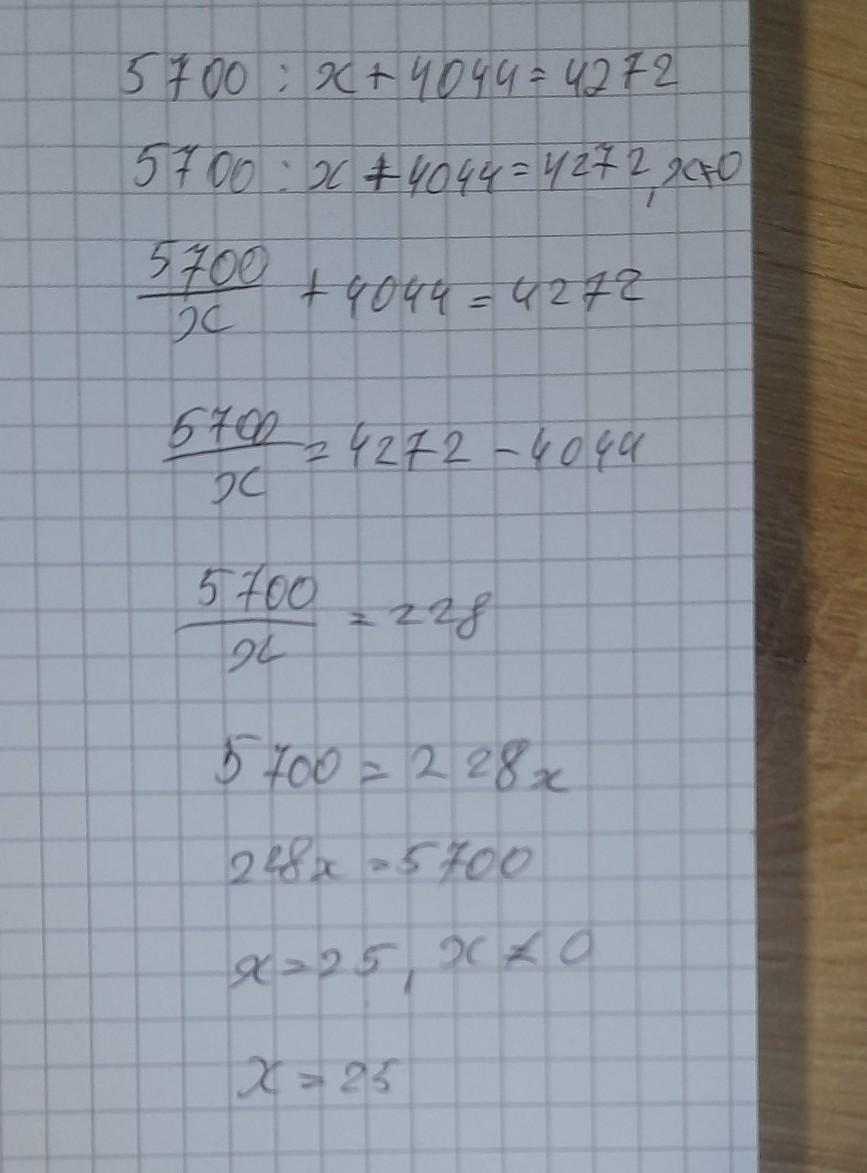 5700 : x + 4044 = 4272
5700 : x + 4044 = 4272, x≠0
5700/x + 4044 = 4272
5700/x = 4272 - 4044
5700/x = 228
5700 = 228x
228x = 5700
x = 25, x ≠ 0
x = 25